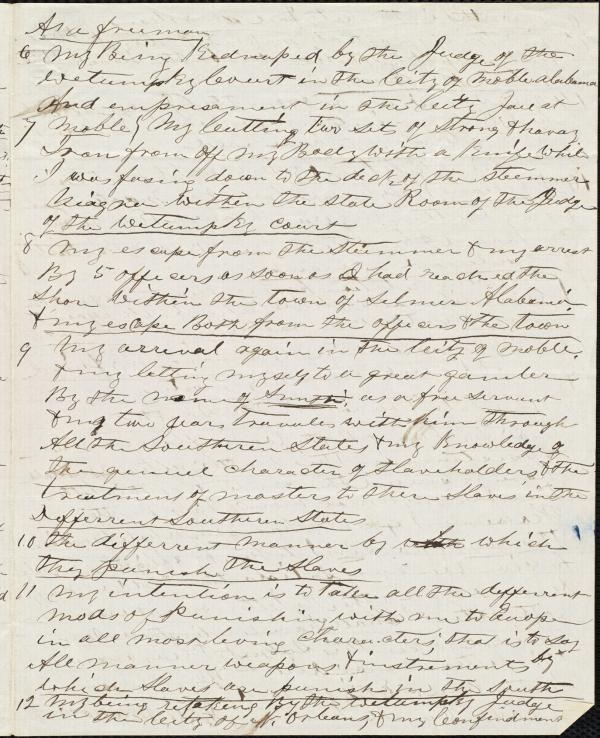 As a freeman
6 My Being Kidnaped by the Judge of the
Wetumpky Court in the City of Moble alabama
And emprisament in the City Jae at
7 Moble, My Cutting two Sets of Strong & havay
Iron from off my Body with a Knife while
I was fasing down to the deck of the Steemmer
Niagra within the State Room of the Judge
of the Wetumpky court
8 My escape from the Steemmer & my arrest
By 5 officers as soon as I had reached the
Shore within the town of Selmer Alabama
& my escape Both from the officers & the town
9 My arrival again in the City of Moble,
& my letting myself to a great gamder
By the name of Smith as a free servant
& my two years travules with him through
All the Southern States & my Knowledge of
the genuel character of Slaveholders & the
treatment of masters to there Slaves in the
Defferrent Southern States
10 the differrent manner by which
they punish the Slaves
11 My intention is to take all the defferent
mods of Punishing with me to Europe
in all most living Characters, that is to say
All manner weapons & instrements by
which Slaves are punish in the South
12 My being retaking by the Wetumpky Judge
in the City of N. Orleans, & my Confindment